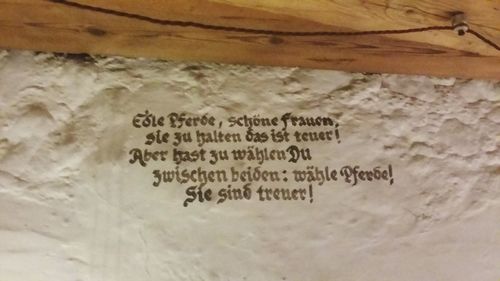 Edle Pferde, schöne Frauen,
sie zu halten das ist teuer!
Aber hast zu wählen Du
zwischen beiden: wähle Pferde!
Sie sind treuer!